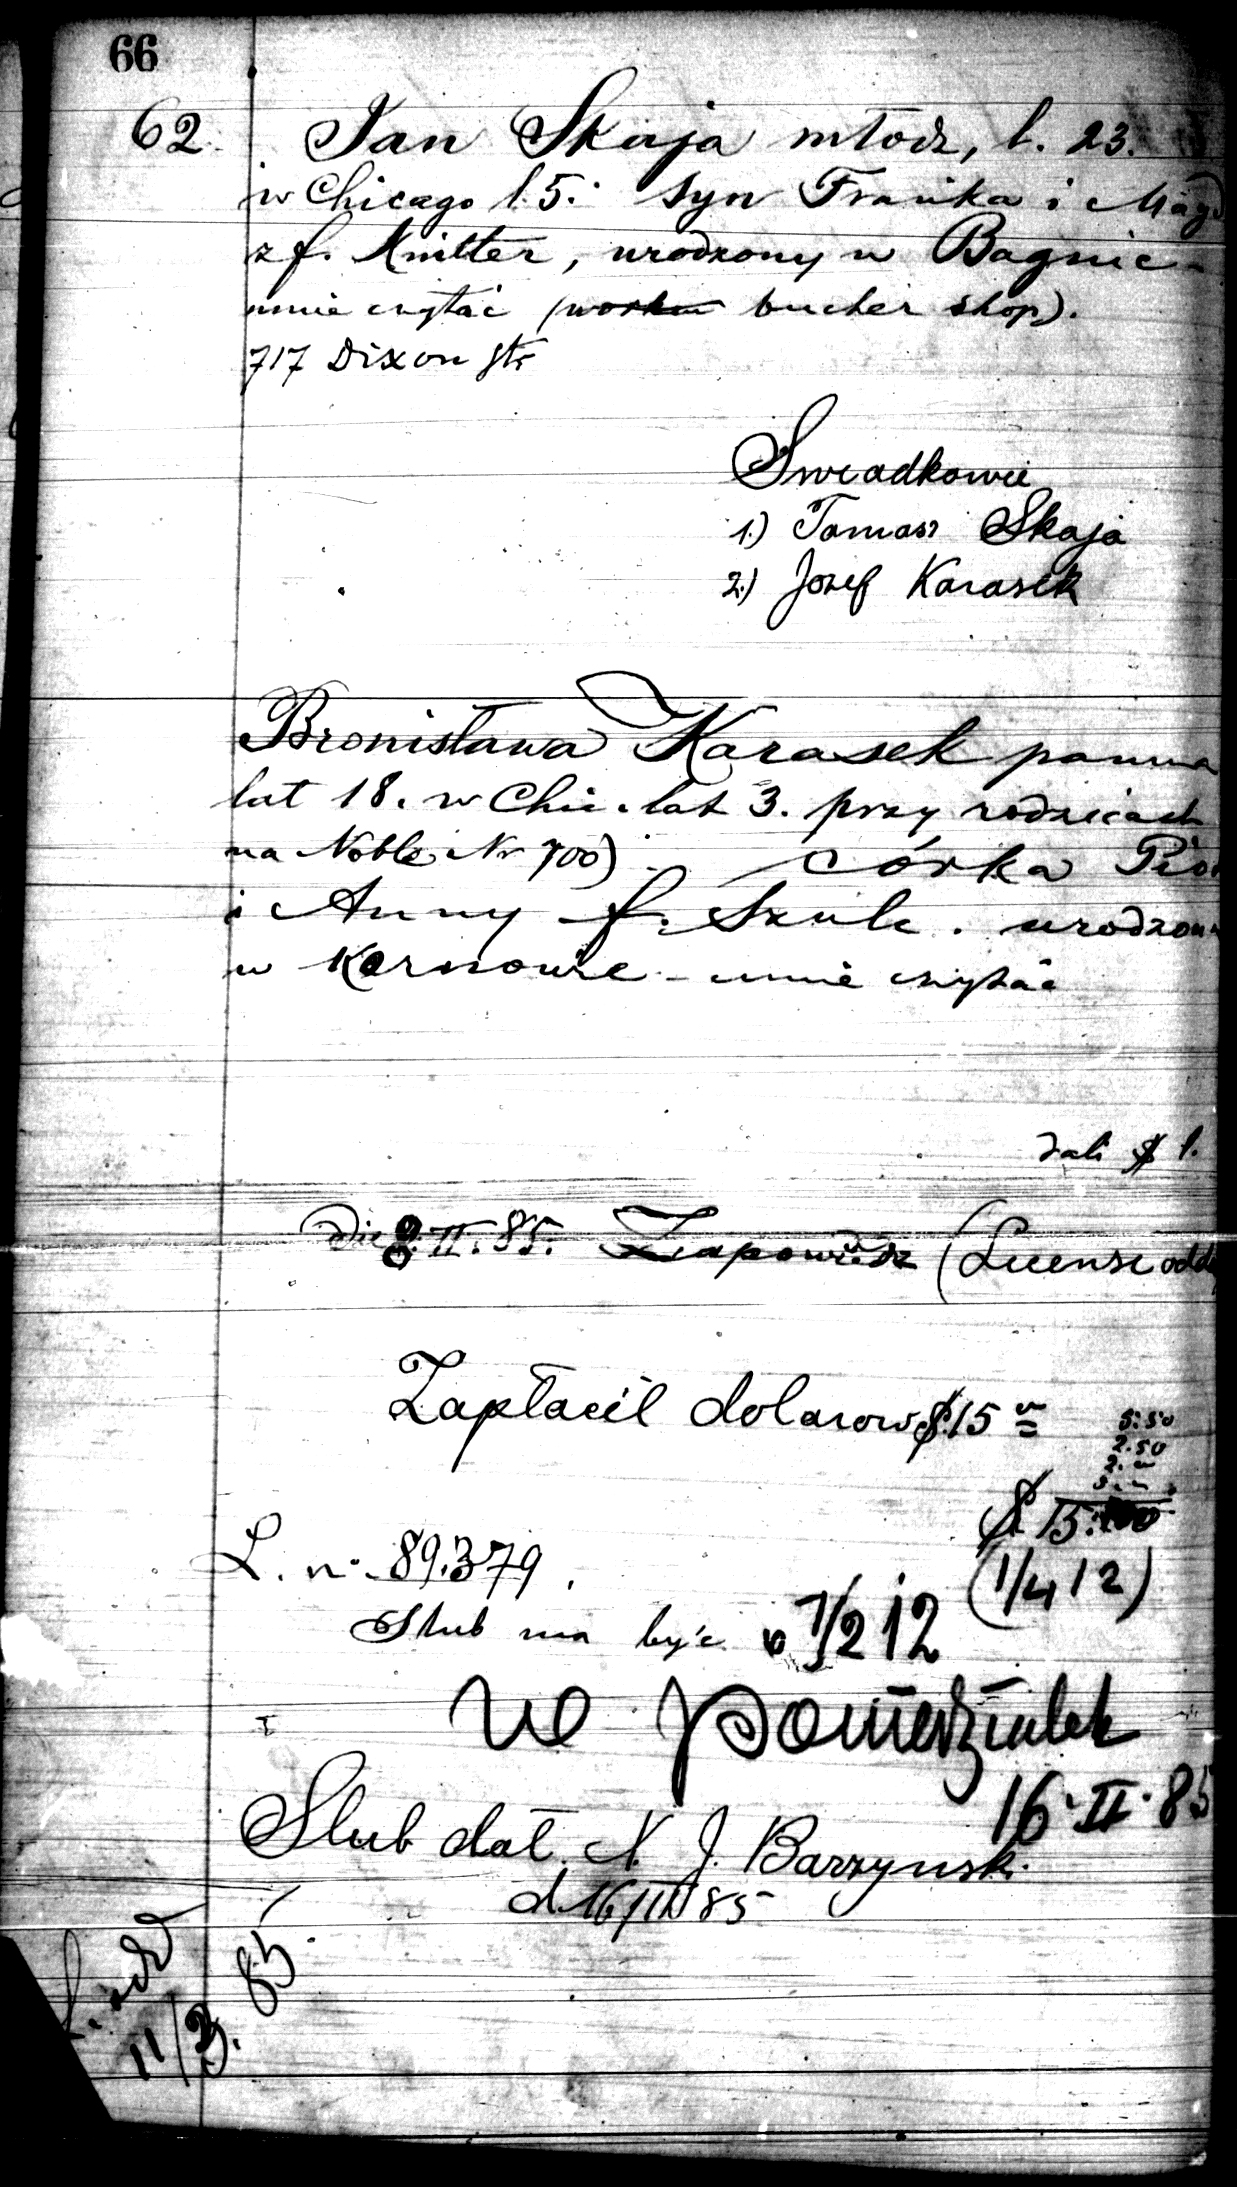 66
62. Jan Skaja młodz, l. 23.
w Chicago l. 5. syn Franka i Magd
z f. Knitter, urodzony w Bagnic-
umie czytać (bucher shop).
717 Dixon str
Swiadkowie
1.) Tomasz Skaja
2.) Jozef Karasek
Bronisława Karasek panna
lat 18. w Chic. lat 3. przy rodzicach
na Noble Nr 700) córka Pio
i Anny f. Szulc. urodzon
w Karnowie - umie czytać
dali $ 1.
Die 8. II. 85. Zapowiedz (License odd
Zapłacil dolarow $15
5.50
2.50
2.
$ 15.00
L. n. 89.379.
(1/4 12)
Slub ma być o 1/2 12
w poniedziałek
16. II. 85
Slub dał X. J. Barzynski
d. 16/II 85
L. odd
11/3. 85.